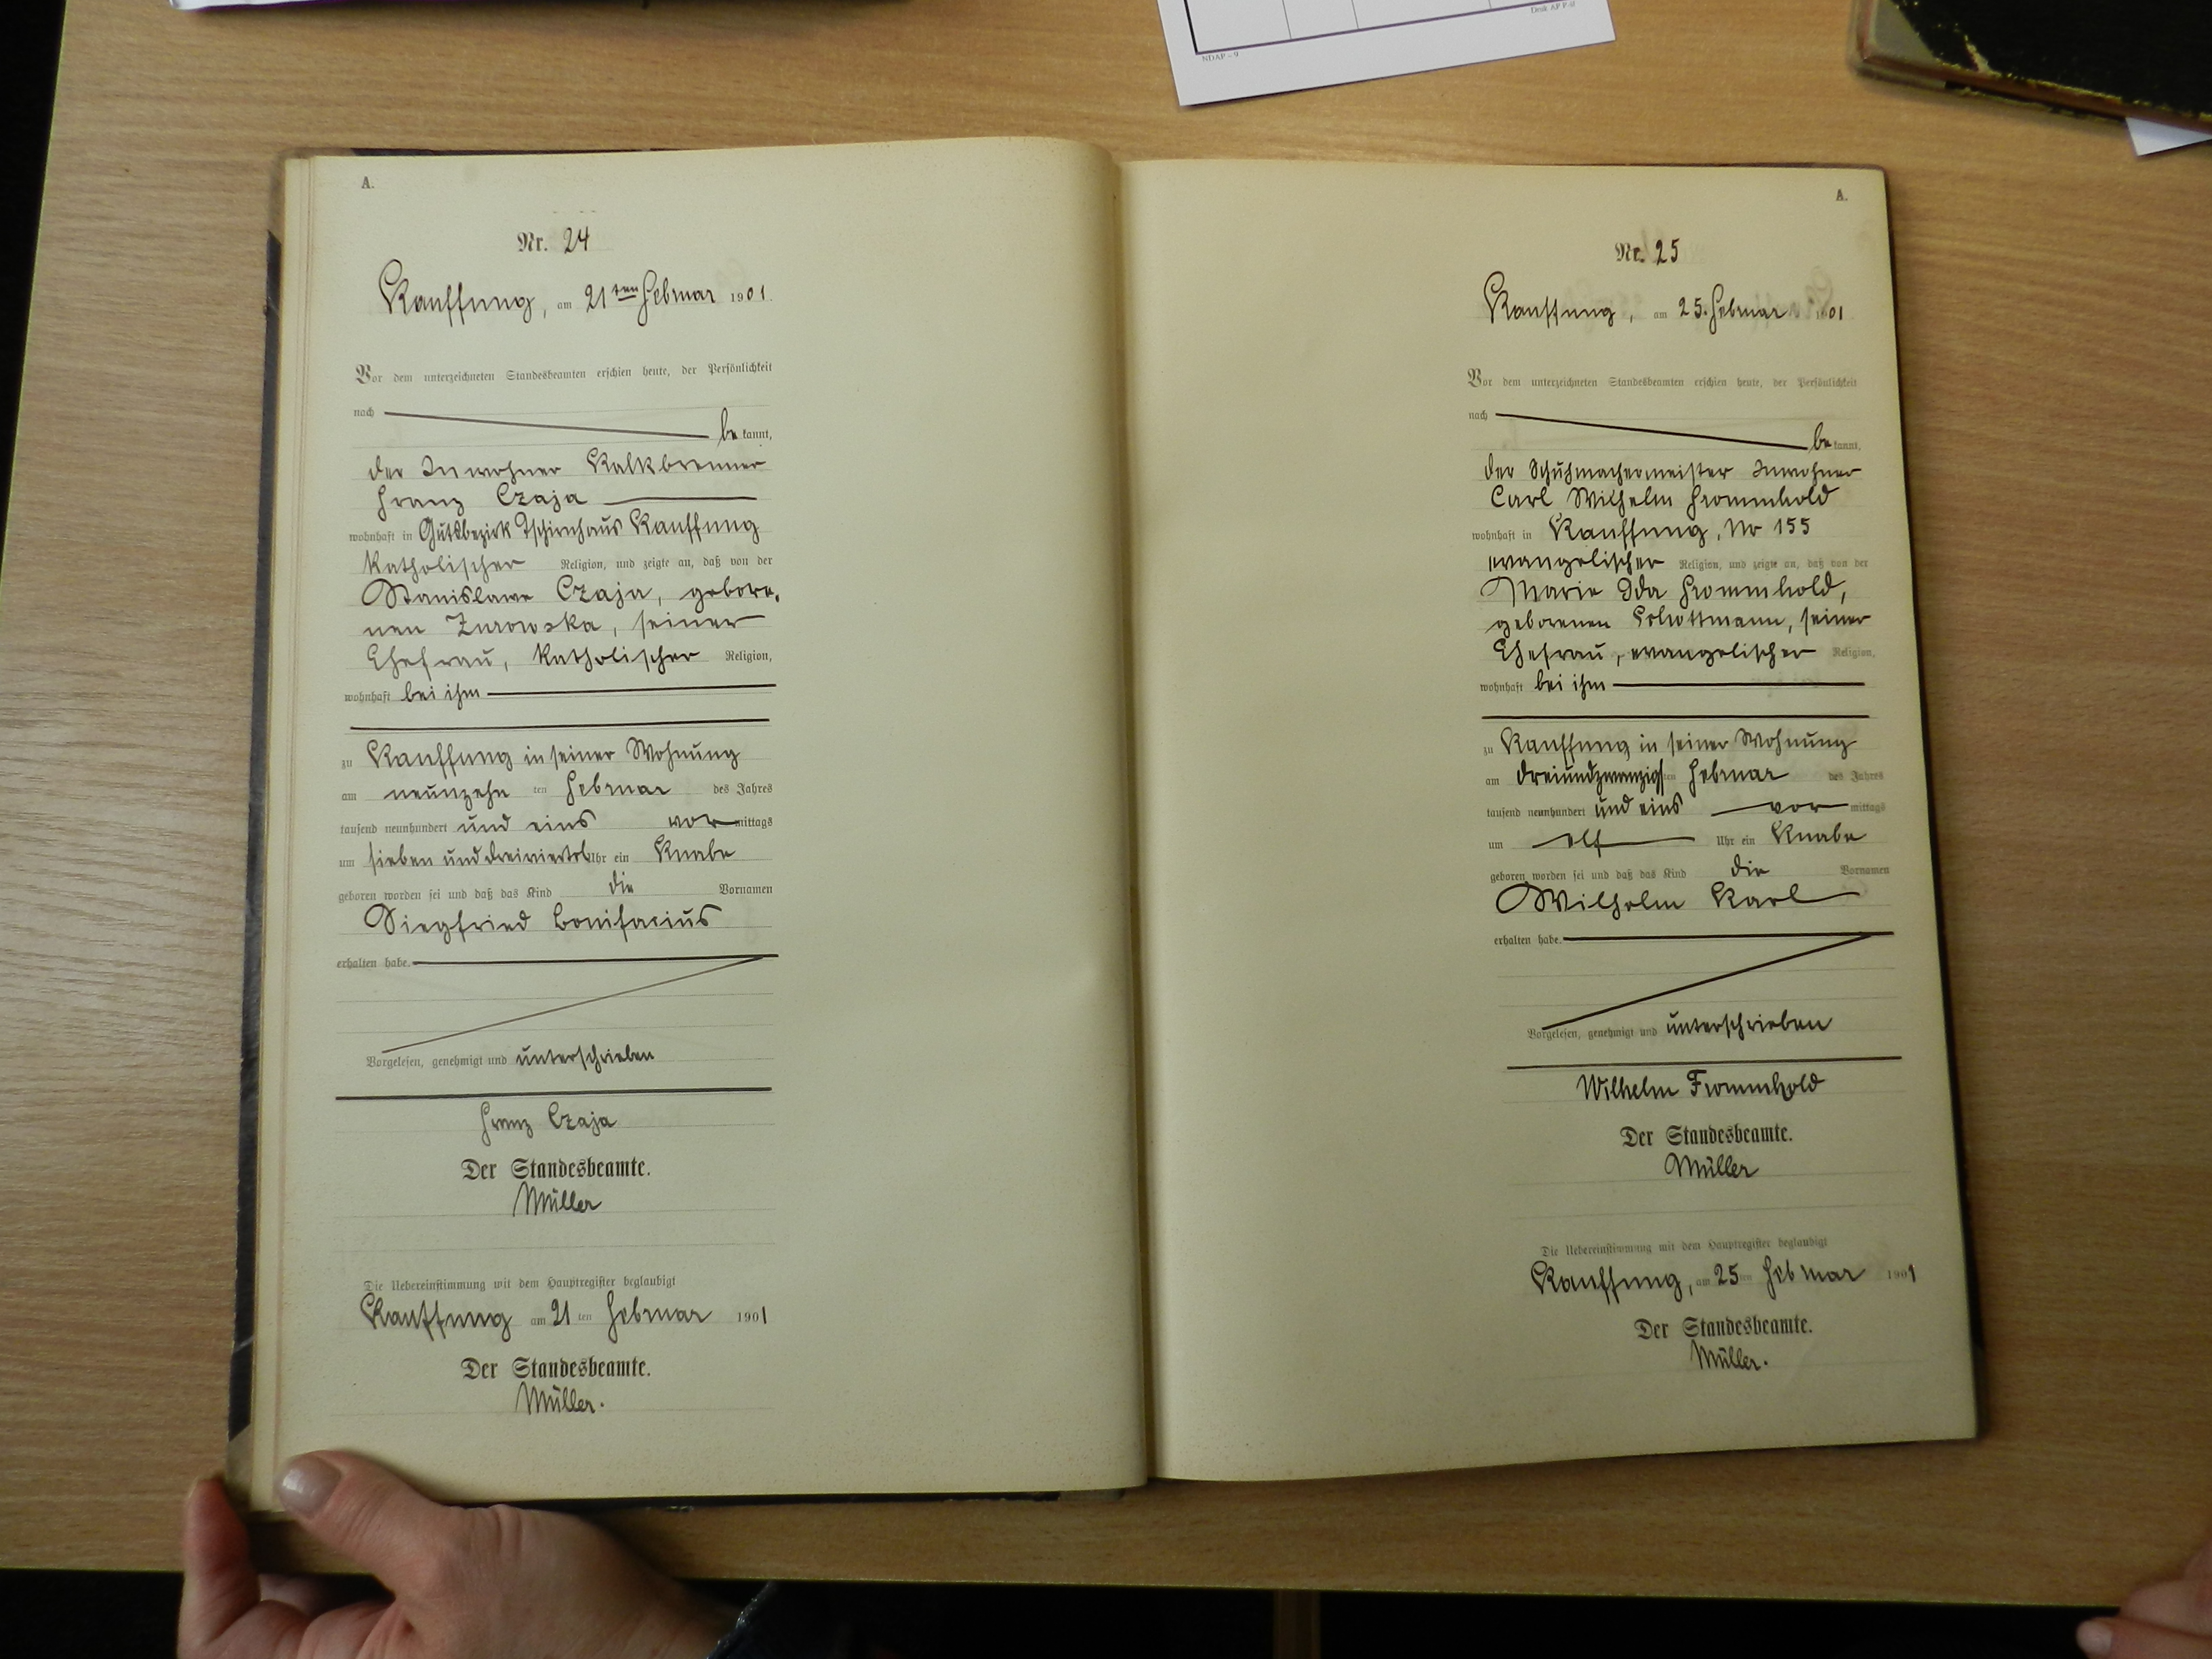 NDAP - 9
A.
Nr. 24
Kauffung, am 21ten Februar 1901.
Vor dem unterzeichneten Standesbeamten erschien heute, der Persönlichkeit
nach
bekannt,
der Inwohner Kalkbrenner
Franz Czaja
wohnhaft in Gutsbezirk Tschirnhaus Kauffung
katholischer Religion, und zeigte an, daß von der
Stanislawa Czaja, gebore,
nen Zurowska, seiner
Ehefrau, katholischer Religion,
wohnhaft bei ihm
zu Kauffung in seiner Wohnung
am neunzehnten Februar des Jahres
tausend neunhundert und eins vormittags
um sieben und dreiviertel Uhr ein Knabe
geboren worden sei und daß das Kind die Vornamen
Siegfried Bonifacius
erhalten habe.
Vorgelesen, genehmigt und unterschrieben
Franz Czaja
Der Standesbeamte.
Müller
Die Uebereinstimmung mit dem Hauptregister beglaubigt
Kauffung am 21ten Februar 1901
Der Standesbeamte.
Müller.
A.
Nr. 25
Kauffung, am 25. Februar 1901
Vor dem unterzeichneten Standesbeamten erschien heute, der Persönlichkeit
nach
bekannt,
der Schuhmachermeister Inwohner
Carl Wilhelm Frommhold
wohnhaft in Kauffung, No 155
evangelischer Religion, und zeigte an, daß von der
Marie Ida Frommhold,
geborenen Schottmann, seiner
Ehefrau, evangelischer Religion,
wohnhaft bei ihm
zu Kauffung in seiner Wohnung
am dreiundzwanzigsten Februar des Jahres
tausend neunhundert und eins vormittags
um elf Uhr ein Knabe
geboren worden sei und daß das Kind die Vornamen
Wilhelm Karl
erhalten habe.
Vorgelesen, genehmigt und unterschrieben
Wilhelm Frommhold
Der Standesbeamte.
Müller
Die Uebereinstimmung mit dem Hauptregister beglaubigt
Kauffung, am 25ten Februar 1901
Der Standesbeamte.
Müller.